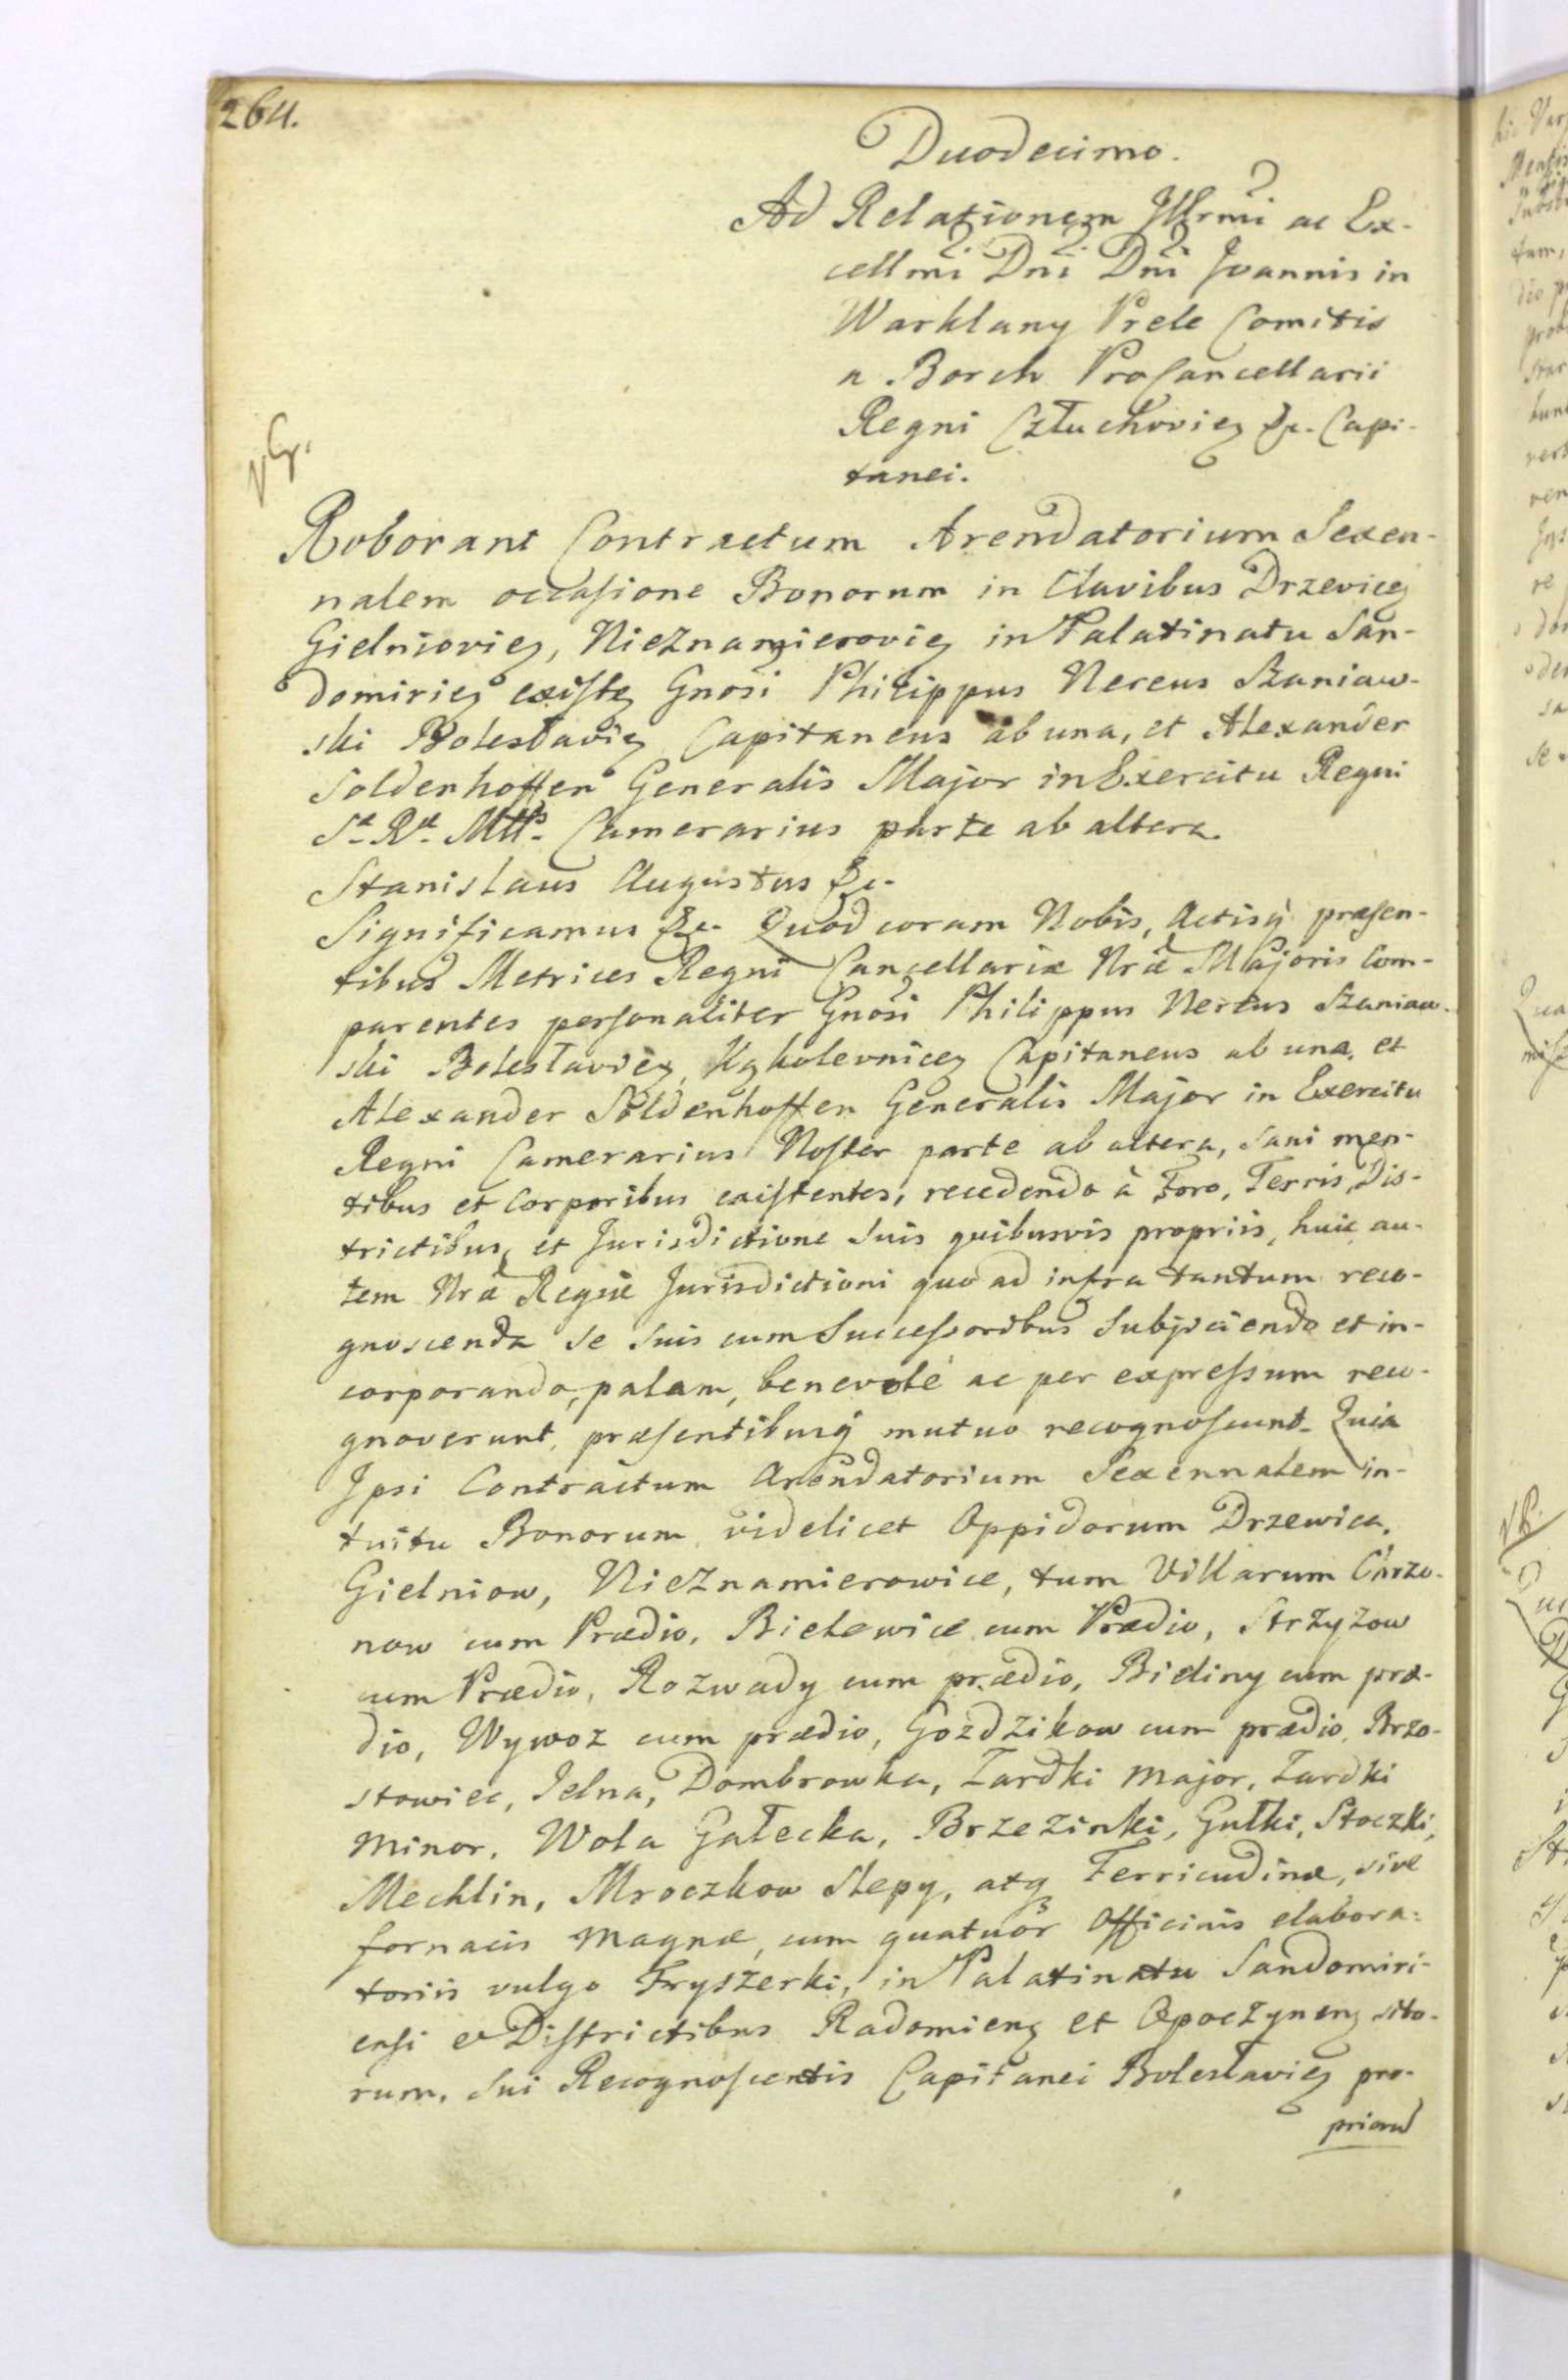 264.
Duodecimo.
Ad Relationem Illrmi ac Ex-
cellmi Dni Dni Joannis in
Warklany Prele Comitis
a Borch ProCancellarii
Regni Człuchovieȝ &c. Capi-
tanei.
Roborant Contractum Arendatorium Sexen-
nalem occasione Bonorum in Clavibus Drzeviceȝ
Gielniovieȝ, Nieznamierovieȝ in Palatinatu San-
domirieȝ existeȝ Gnosi Philippus Nereus Szaniaw-
ski Bolesłavieȝ Capitaneus ab una, et Alexander
Soldenhoffen Generalis Major in Exercitu Regni
Sæ Ræ Mttis Camerarius parte ab altera.
Stanislaus Augustus &c.
Significamus &c. Quod coram Nobis, Actisq́ præsen-
tibus Metrices Regni Cancellariæ Nræ Majoris Com-
parentes personaliter Gnosi Philippus Nereus Szaniaw-
ski Bolesłavieȝ, Kąkolevniceȝ Capitaneus ab una, et
Alexander Soldenhoffen Generalis Major in Exercitu
Regni Camerarius Noster parte ab altera, sani men-
tibus et corporibus existentes, recedendo à Foro, Terris, Dis-
trictibus, et Jurisdictione suis quibusvis propriis, huic au-
tem Nræ Regiæ Jurisdictioni quo ad infra tantum reco-
gnoscenda se suis cum Successoribus subjiciendo et in-
corporando, palam, benevolè ac per expressum reco-
gnoverunt, præsentibusq́ mutuo recognoscunt. Quia
Ipsi Contractum Arendatorium Sexennalem in-
tuitu Bonorum videlicet Oppidorum Drzewica,
Gielniow, Nieznamierowice, tum Villarum Chrzo-
now cum Prædio, Bielewice cum Prædio, Strzyzow
cum Prædio, Rozwady cum prædio, Bieliny cum præ-
dio, Wywoz cum prædio, Gozdzikow cum prædio, Brzo-
stowiec, Jelna, Dombrowka, Zardki major, Zardki
minor, Wola Gałecka, Brzezinki, Gutki, Stoczki,
Mechlin, Mroczkow Slepy, atq Ferricudinæ, sive
fornacis magnæ, cum quatuor Officinis elabora-
toriis vulgo Fryszerki, in Palatinatu Sandomiri-
ensi et Districtibus Radomieng et Opoczyneng sito-
rum, sui Recognoscentis Capitanei Bolesłavieȝ pro-
priorum